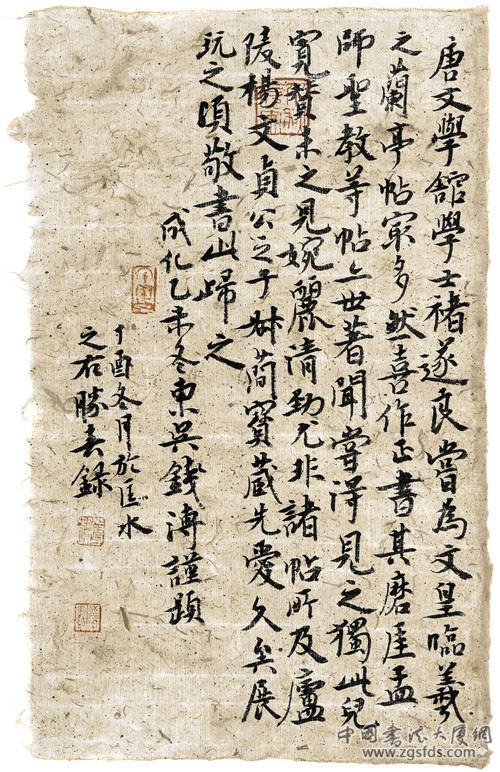 唐文學館學士褚遂良嘗為文皇臨羲
之蘭亭帖宲多然喜作正書其磨崖孟
師聖教等帖亦世著聞嘗得見之獨此兒
寬贊未之見婉麗清勁尤非諸帖所及廬
陵楊文貞公之子叔簡寶藏先愛久矣展
玩之頃敬書此歸之
成化乙未冬東吳錢溥謹題
丁酉冬月於匡水
之右勝春錄
中国書法大厦網
www.zgsfds.com